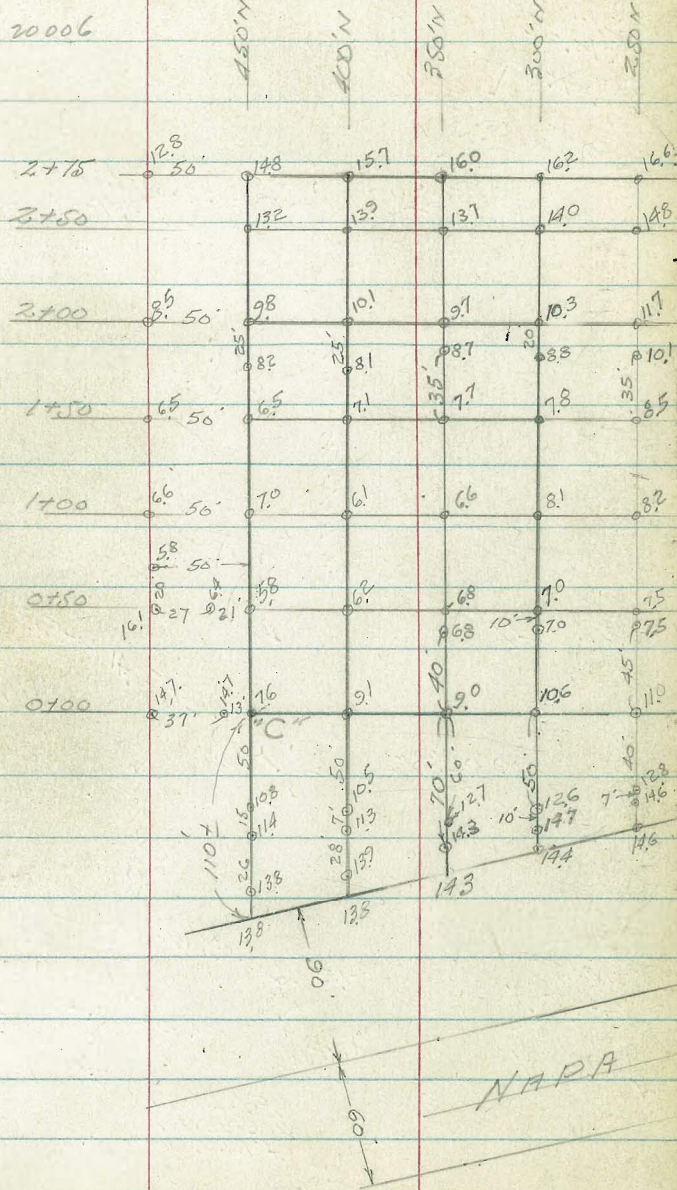 20006
450'N 400'N 350'N 300'N 250'N
2+75 12.8 50' 14.8 15.7 16.0 16.2 16.6
2+50 13.2 13.9 13.7 14.0 14.8
2+00 8.5 50' 9.8 10.1 9.7 10.3 11.7
25' 8.2 25' 8.1 35' 8.7 20 8.8 35' 10.1
1+50 6.5 50' 6.5 7.1 7.7 7.8 8.5
1+00 6.6 50' 7.0 6.1 6.6 8.1 8.2
5.8 50'
20
0+50 16.1 27 21' 5.8 6.2 6.8 7.0 7.5
6.8 10' 7.0 7.5
40' 45'
0+00 14.7 37' 14.7 13' 7.6 9.1 9.0 10.6 11.0
"C"
50 50 70' 60' 50' 40'
10.8 10.5 12.7 12.6 12.8
15 11.4 7' 11.3 14.3 10' 14.7 7' 14.6
110'± 26 13.8 28' 13.9 14.3 14.4 14.6
13.8 13.8
90'
NAPA
60